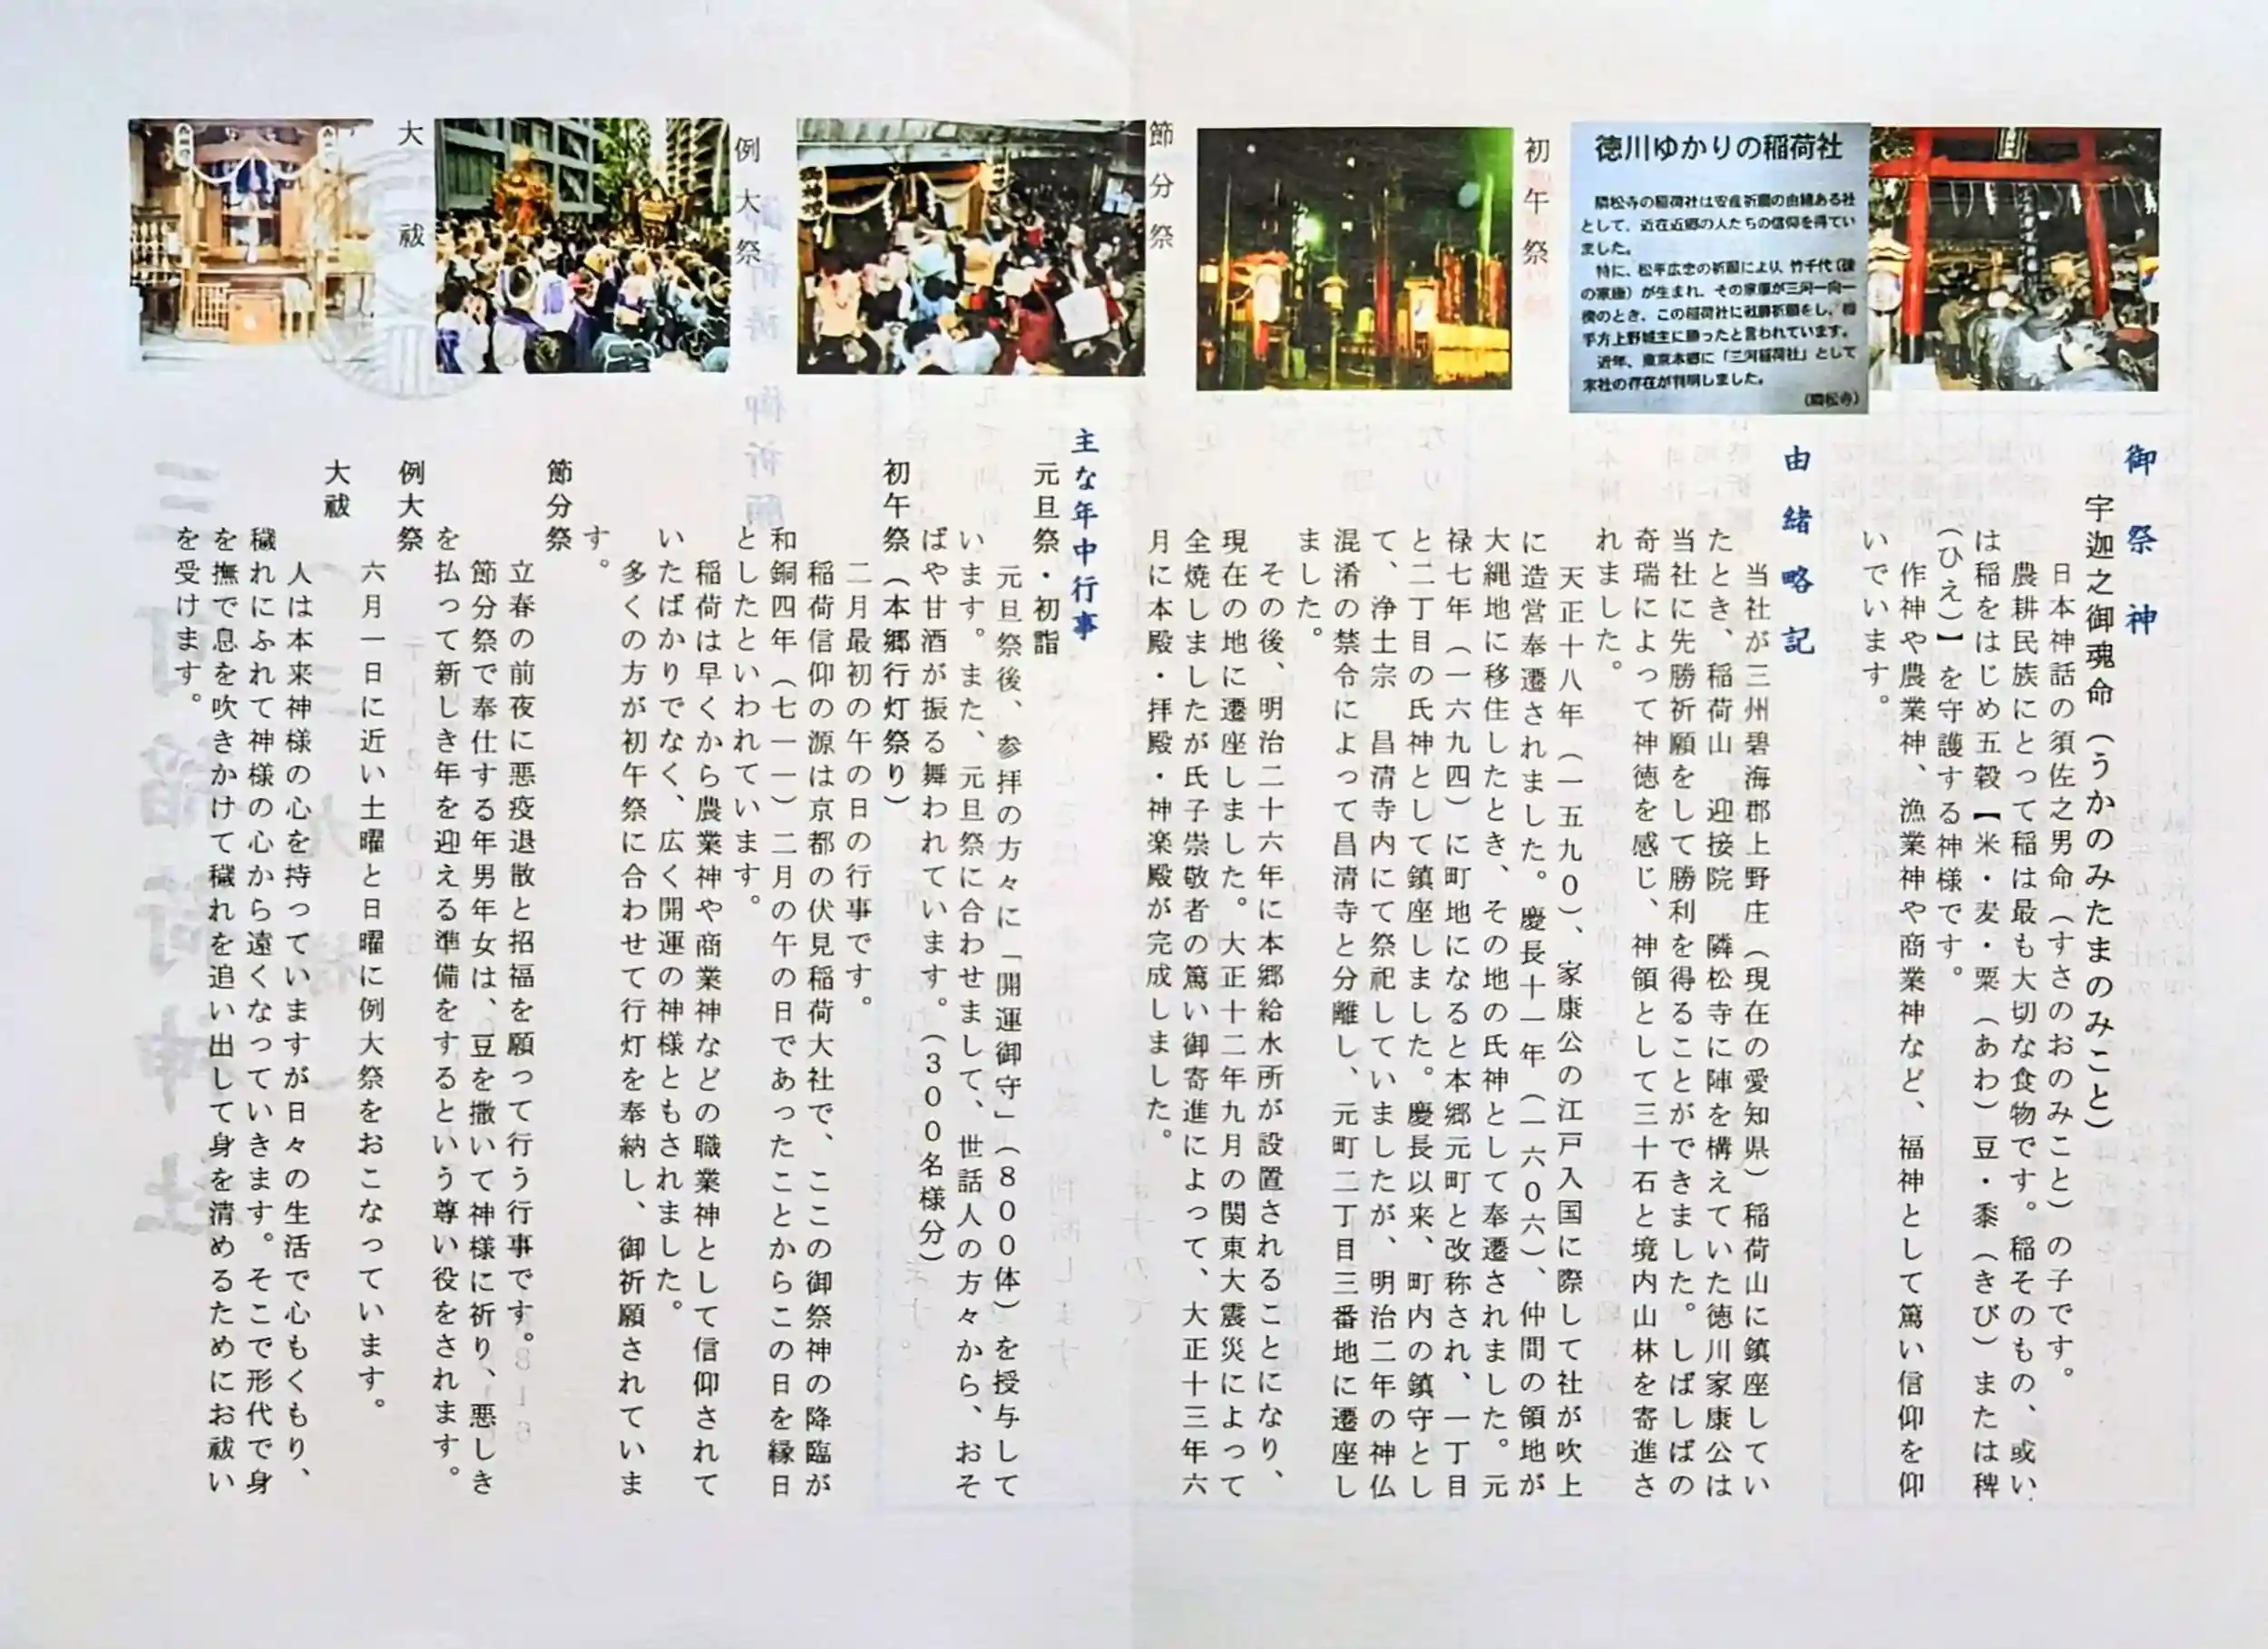 徳川ゆかりの稲荷社
隣松寺の稲荷社は安産祈願の由緒ある社
として、近在近郷の人たちの信仰を得てい
ました。
特に、松平広忠の祈願により、竹千代(後
の家康)が生まれ、その家康が三河一向一
揆のとき、この稲荷社に戦勝祈願をし、相
手方上野城主に勝ったと言われています。
近年、東京本郷に「三河稲荷社」として
末社の存在が判明しました。
(隣松寺)
初午祭
節分祭
例大祭
大祓
御祭神
宇迦之御魂命(うかのみたまのみこと)
日本神話の須佐之男命(すさのおのみこと)の子です。
農耕民族にとって稲は最も大切な食物です。稲そのもの、或い
は稲をはじめ五穀【米・麦・粟(あわ)豆・黍(きび)または稗
(ひえ)】を守護する神様です。
作神や農業神、漁業神や商業神など、福神として篤い信仰を仰
いでいます。
由緒略記
当社が三州碧海郡上野庄(現在の愛知県)稲荷山に鎮座してい
たとき、稲荷山 迎接院 隣松寺に陣を構えていた徳川家康公は
当社に先勝祈願をして勝利を得ることができました。しばしばの
奇瑞によって神徳を感じ、神領として三十石と境内山林を寄進さ
れました。
天正十八年(一五九0)、家康公の江戸入国に際して社が吹上
に造営奉遷されました。慶長十一年(一六0六)、仲間の領地が
大縄地に移住したとき、その地の氏神として奉遷されました。元
禄七年(一六九四)に町地になると本郷元町と改称され、一丁目
と二丁目の氏神として鎮座しました。慶長以来、町内の鎮守とし
て、浄土宗 昌清寺内にて祭祀していましたが、明治二年の神仏
混淆の禁令によって昌清寺と分離し、元町二丁目三番地に遷座し
ました。
その後、明治二十六年に本郷給水所が設置されることになり、
現在の地に遷座しました。大正十二年九月の関東大震災によって
全焼しましたが氏子崇敬者の篤い御寄進によって、大正十三年六
月に本殿・拝殿・神楽殿が完成しました。
主な年中行事
元旦祭・初詣
元旦祭後、参拝の方々に「開運御守」(800体)を授与して
います。また、元旦祭に合わせまして、世話人の方々から、おそ
ばや甘酒が振る舞われています。(300名様分)
初午祭(本郷行灯祭り)
二月最初の午の日の行事です。
稲荷信仰の源は京都の伏見稲荷大社で、ここの御祭神の降臨が
和銅四年(七一一)二月の午の日であったことからこの日を縁日
としたといわれています。
稲荷は早くから農業神や商業神などの職業神として信仰されて
いたばかりでなく、広く開運の神様ともされました。
多くの方が初午祭に合わせて行灯を奉納し、御祈願されていま
す。
節分祭
立春の前夜に悪疫退散と招福を願って行う行事です。
節分祭で奉仕する年男年女は、豆を撒いて神様に祈り、悪しき
を払って新しき年を迎える準備をするという尊い役をされます。
例大祭
六月一日に近い土曜と日曜に例大祭をおこなっています。
大祓
人は本来神様の心を持っていますが日々の生活で心もくもり、
穢れにふれて神様の心から遠くなっていきます。そこで形代で身
を撫で息を吹きかけて穢れを追い出して身を清めるためにお祓い
を受けます。